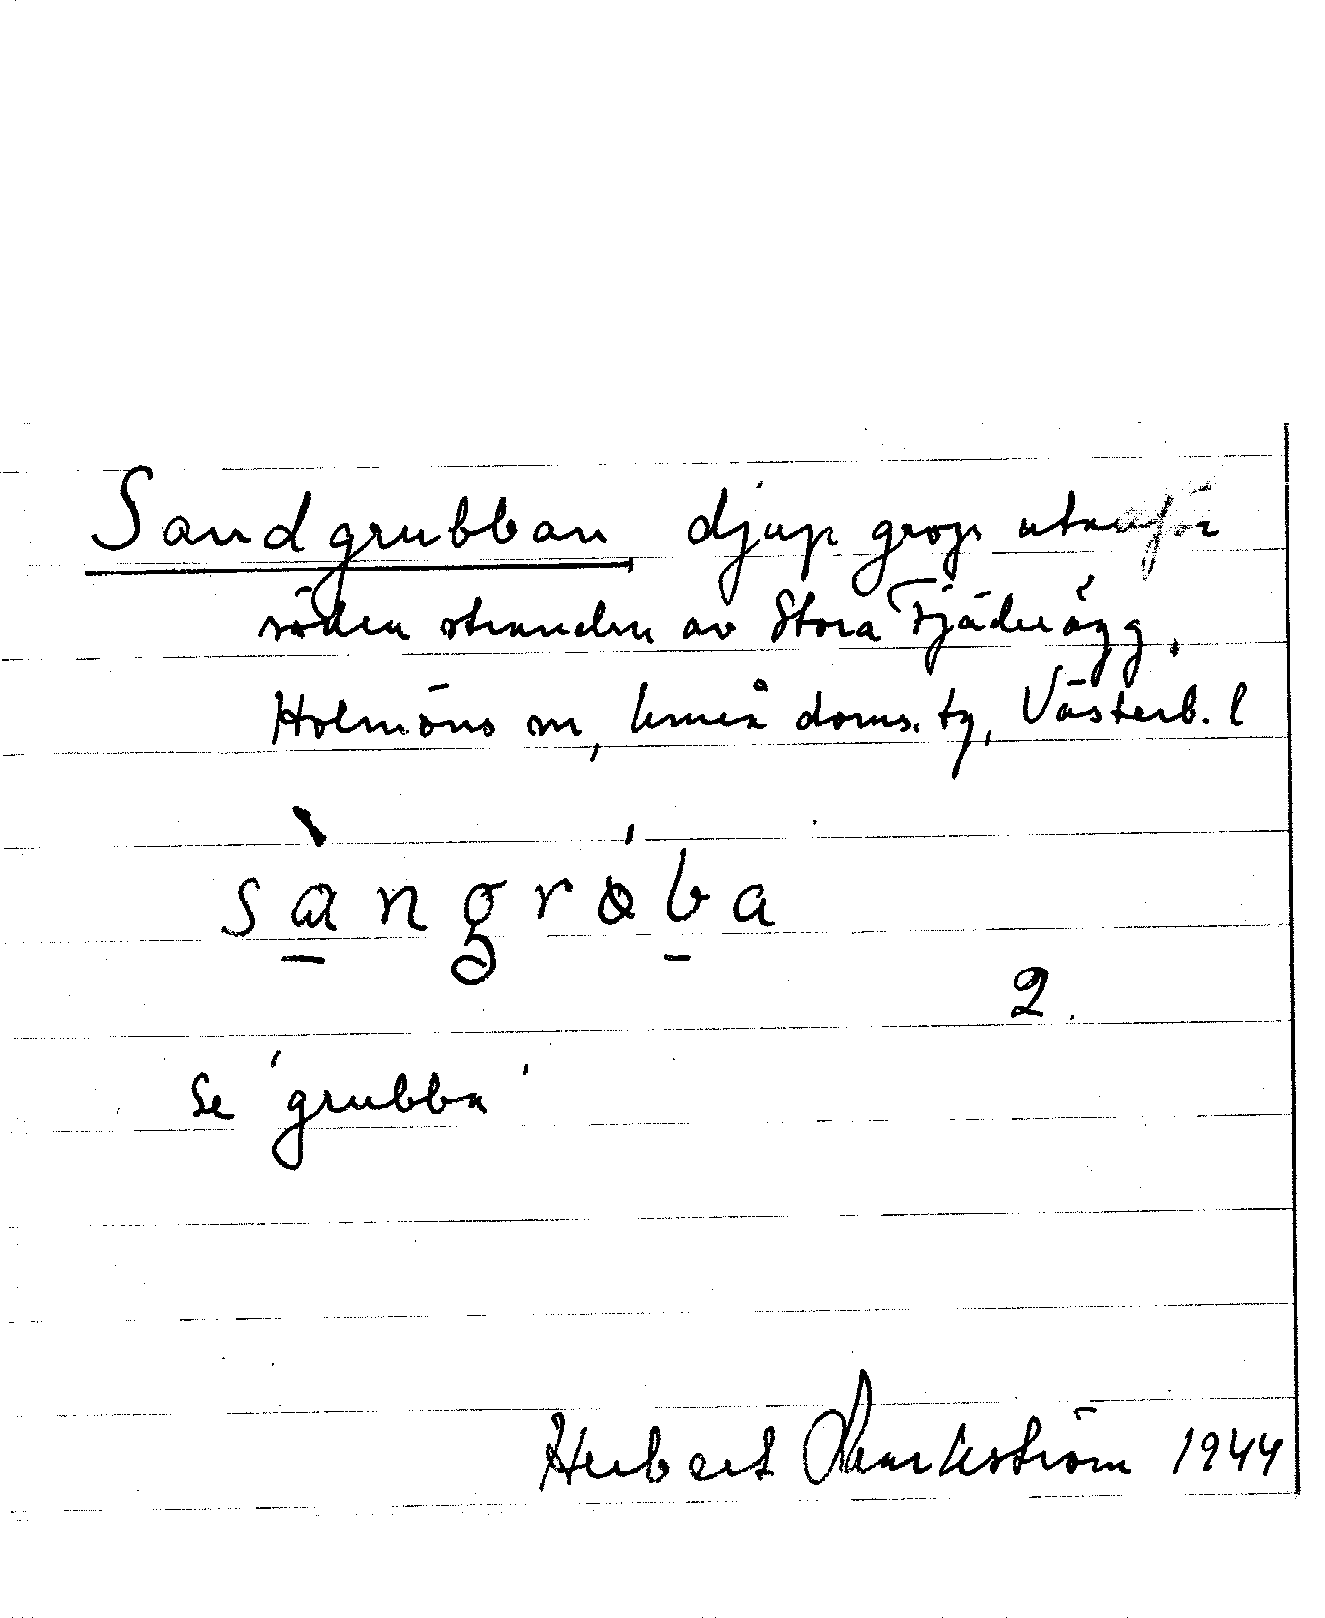 Sandgrubban, djup grop utanför
södra stranden av Stora Fjäderägg,
Holmöns sn, Umeå doms. tg, Västerb. l
sàngróba
2.
Se 'grubba'
Herbert 1944